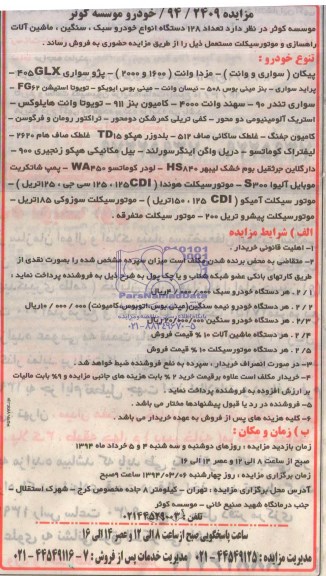 مزایده ۲۴۰۹ / ۹۴ / خودرو موسسه کوثر
موسسه کوثر در نظر دارد تعداد ۱۲۸ دستگاه انواع خودرو سبک ، سنگین ، ماشین آلات
راهسازی و موتورسیکلت مستعمل ذیل را از طریق مزایده حضوری به فروش رساند .
تنوع خودرو :
پیکان ( سواری و وانت ) - مزدا وانت ( ۱۶۰۰ و ۲۰۰۰ ) - پژو سواری ۴۰۵GLX -
پراید سواری - بنز مینی بوس ۵۰۸ - نیسان وانت - مینی بوس ایویکو - تویوتا استیشن FG۶۲
سواری تندر ۹۰ - سهند وانت ۴۰۰۰ - کامیون بنز ۹۱۱ - تویوتا وانت هایلوکس -
استریک آلومینیومی دو محور - کفی تریلی کمرشکن دومحور - تراکتور رومان و فرگوسن -
کامیون جفنگ - غلطک ساکائی صاف ۵۱۲ - بلدوزر هپکو TD۱۵ غلطک صاف هام ۲۶۲۰ -
لیفتراک کوماتسو - دریل واگن اینگرسورلند - بیل مکانیکی هپکو زنجیری ۹۰۰ -
دارکلاین جرثقیل بوم خشک لیبهر HS۸۴۰ - لودر کوماتسو WA۴۵۰ - پمپ شاتکریت
موبایل آلیوا S۳۰۰ - موتورسیکلت هوندا (۱۲۵CDI ، ۱۲۵ سی جی ، ۱۲۵تریل ) -
موتور سیکلت آمیکو ( ۱۲۵ CDI ، ۱۵۰تریل ) - موتورسیکلت سوزوکی ۱۸۵تریل -
موتورسیکلت پیشرو تریل ۲۰۰ - موتور سیکلت متفرقه .
الف ) شرایط مزایده
۱- اهلیت قانونی خریدار .
۲- متقاضی به محض برنده شدن مکلف است میزان سپرده مشخص شده را بصورت نقدی از
طریق کارتهای بانکی عضو شبکه شتاب و یا چک پول به شرح ذیل به فروشنده پرداخت نماید :
۲/۱ . هر دستگاه خودرو سبک
۲/۲ . هر دستگاه خودرو نیمه سنگین(مینی بوس،اتوبوس،کامیونت)
۲/۳. هر دستگاه خودرو سنگین
۲/۴ . هر دستگاه ماشین آلات ۱۰ % قیمت فروش
۲/۵ . هر دستگاه موتورسیکلت ۱۰ % قیمت فروش
۳- در صورت انصراف خریدار ، سپرده به نفع فروشنده ضبط خواهد شد .
۴- خریدار مکلف است علاوه برقیمت خرید ۲ % بابت هزینه های جانبی مزایده و ۹% بابت مالیات
بر ارزش افزوده به فروشنده پرداخت نماید .
۵- فروشنده در رد یا قبول پیشنهادها مختار می باشد .
۶- کلیه هزینه های پس از فروش به عهده خریدار می باشد .
ب ) زمان و مکان :
زمان بازدید مزایده : روزهای دوشنبه و سه شنبه ۴ و ۵ خرداد ماه ۱۳۹۴
صبح از ساعت ۸ الی ۱۲ و عصر ۱۴ الی ۱۶
زمان برگزاری مزایده : روز چهارشنبه ۱۳۹۴/۰۳/۰۶ ساعت ۹صبح
آدرس محل برگزاری مزایده : تهران - کیلومتر ۸ جاده مخصوص کرج - شهرک استقلال -
جنب درمانگاه شهید صنیع خانی - موسسه کوثر
تلفن : ۰۲۱۴۴۵۲۹۰۰۳
ساعت پاسخگویی صبح از ساعت ۸ الی ۱۲ و عصر ۱۴ الی ۱۶
مدیریت مزایده : ۴۴۵۴۹۱۲۵-۰۲۱ مدیریت خدمات پس از فروش : ۷ - ۴۴۵۴۹۱۱۶ - ۰۲۱